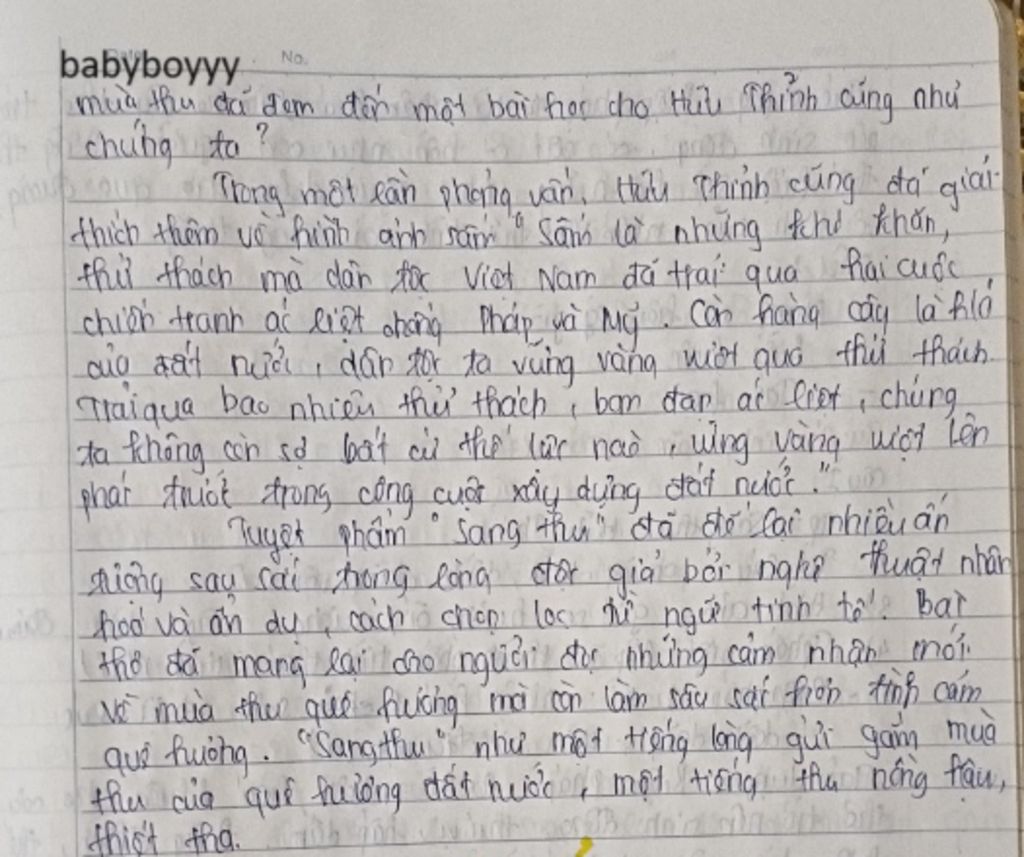 babyboyyy
No.
mùa thu đã đem đến một bài học cho Hữu Thỉnh cũng như
chúng ta?
Trong một lần phỏng vấn, Hữu Thỉnh cũng đã giải
thích thêm về hình ảnh sấm "Sấm là những khó khăn,
thử thách mà dân tộc Việt Nam đã trải qua hai cuộc
chiến tranh ác liệt chống Pháp và Mỹ. Còn hàng cây là
của đất nước, dân tộc ta vững vàng vượt qua thử thách.
Trải qua bao nhiêu thử thách, bom đạn ác liệt, chúng
ta không còn sợ bất cứ thế lực nào, vững vàng vượt lên
phía trước trong công cuộc xây dựng đất nước."
Tuyệt phẩm "Sang thu" đã để lại nhiều ấn
tượng sâu sắc trong lòng độc giả bởi nghệ thuật nhân
hoá và ẩn dụ, cách chọn lọc từ ngữ tinh tế. Bài
thơ đã mang lại cho người đọc những cảm nhận mới
về mùa thu quê hương mà còn làm sâu sắc hơn tình cảm
quê hương. "Sang thu" như một tiếng lòng gửi gắm mùa
thu của quê hương đất nước, một tiếng thu nồng hậu,
thiết tha.